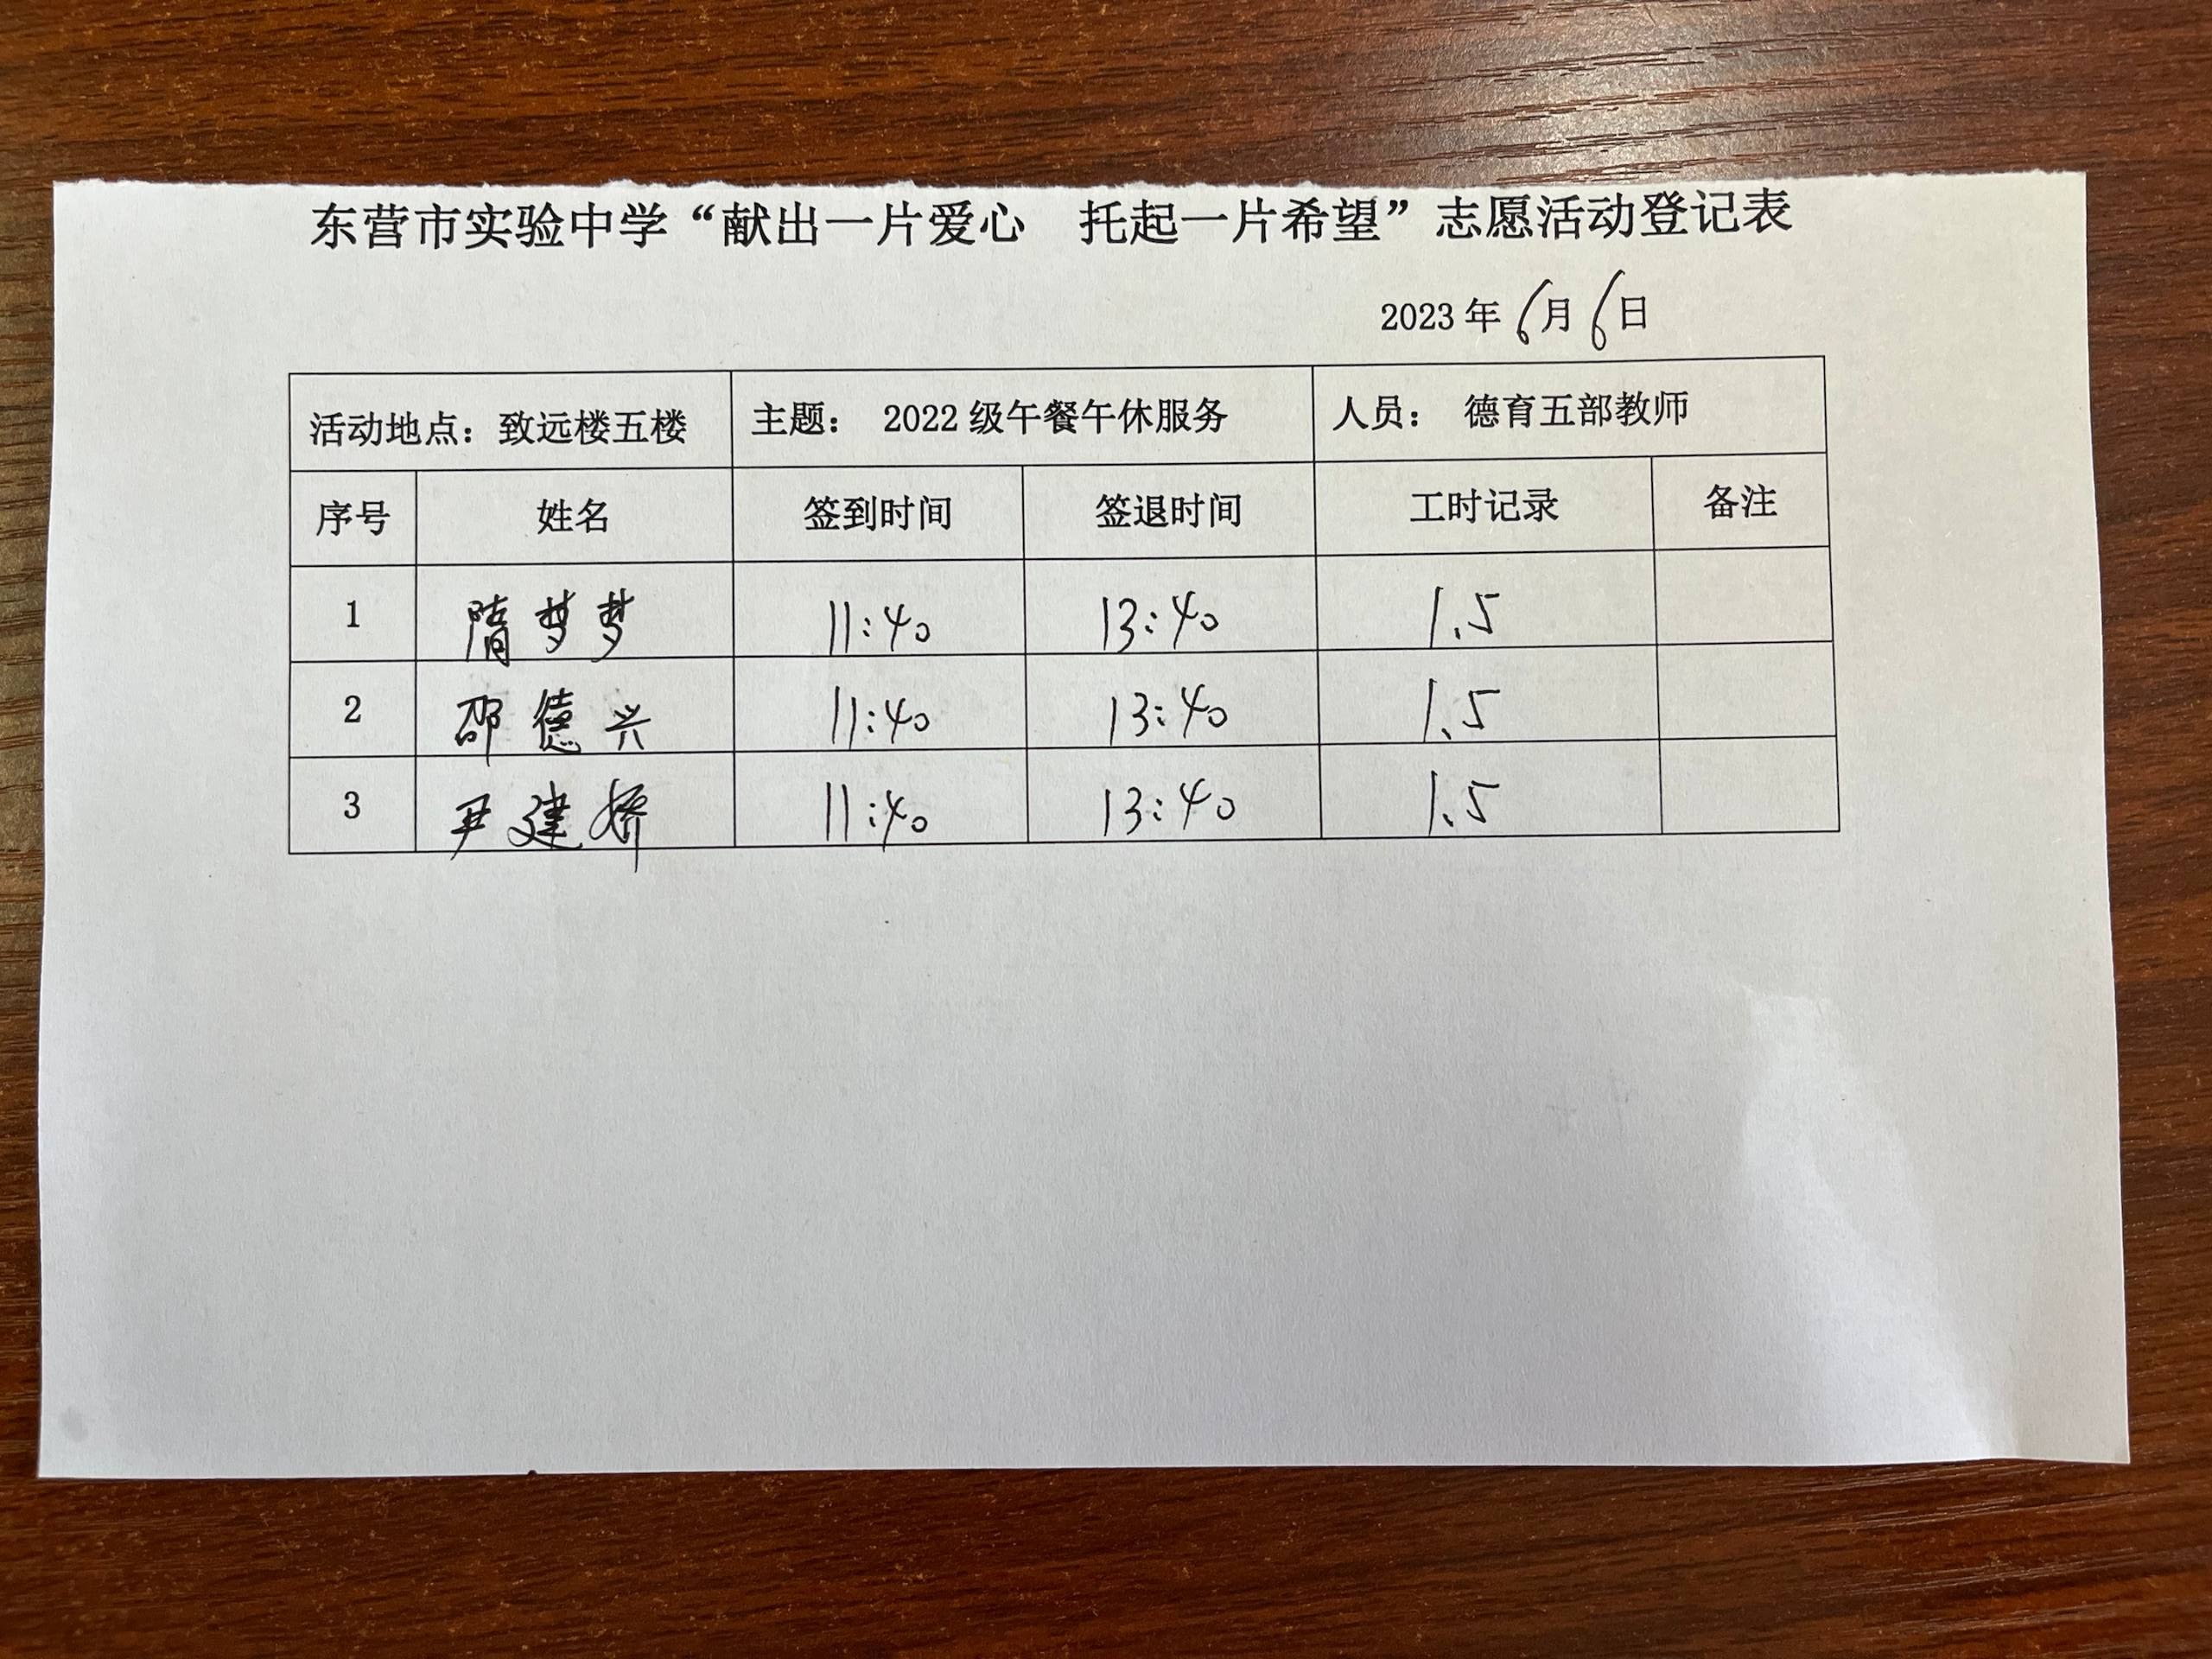 东营市实验中学“献出一片爱心 托起一片希望”志愿活动登记表
2023年6月6日
活动地点：致远楼五楼 主题： 2022级午餐午休服务 人员： 德育五部教师
序号 姓名 签到时间 签退时间 工时记录 备注
1 隋梦梦 11:40 13:40 1.5
2 邵德兴 11:40 13:40 1.5
3 尹建娇 11:40 13:40 1.5